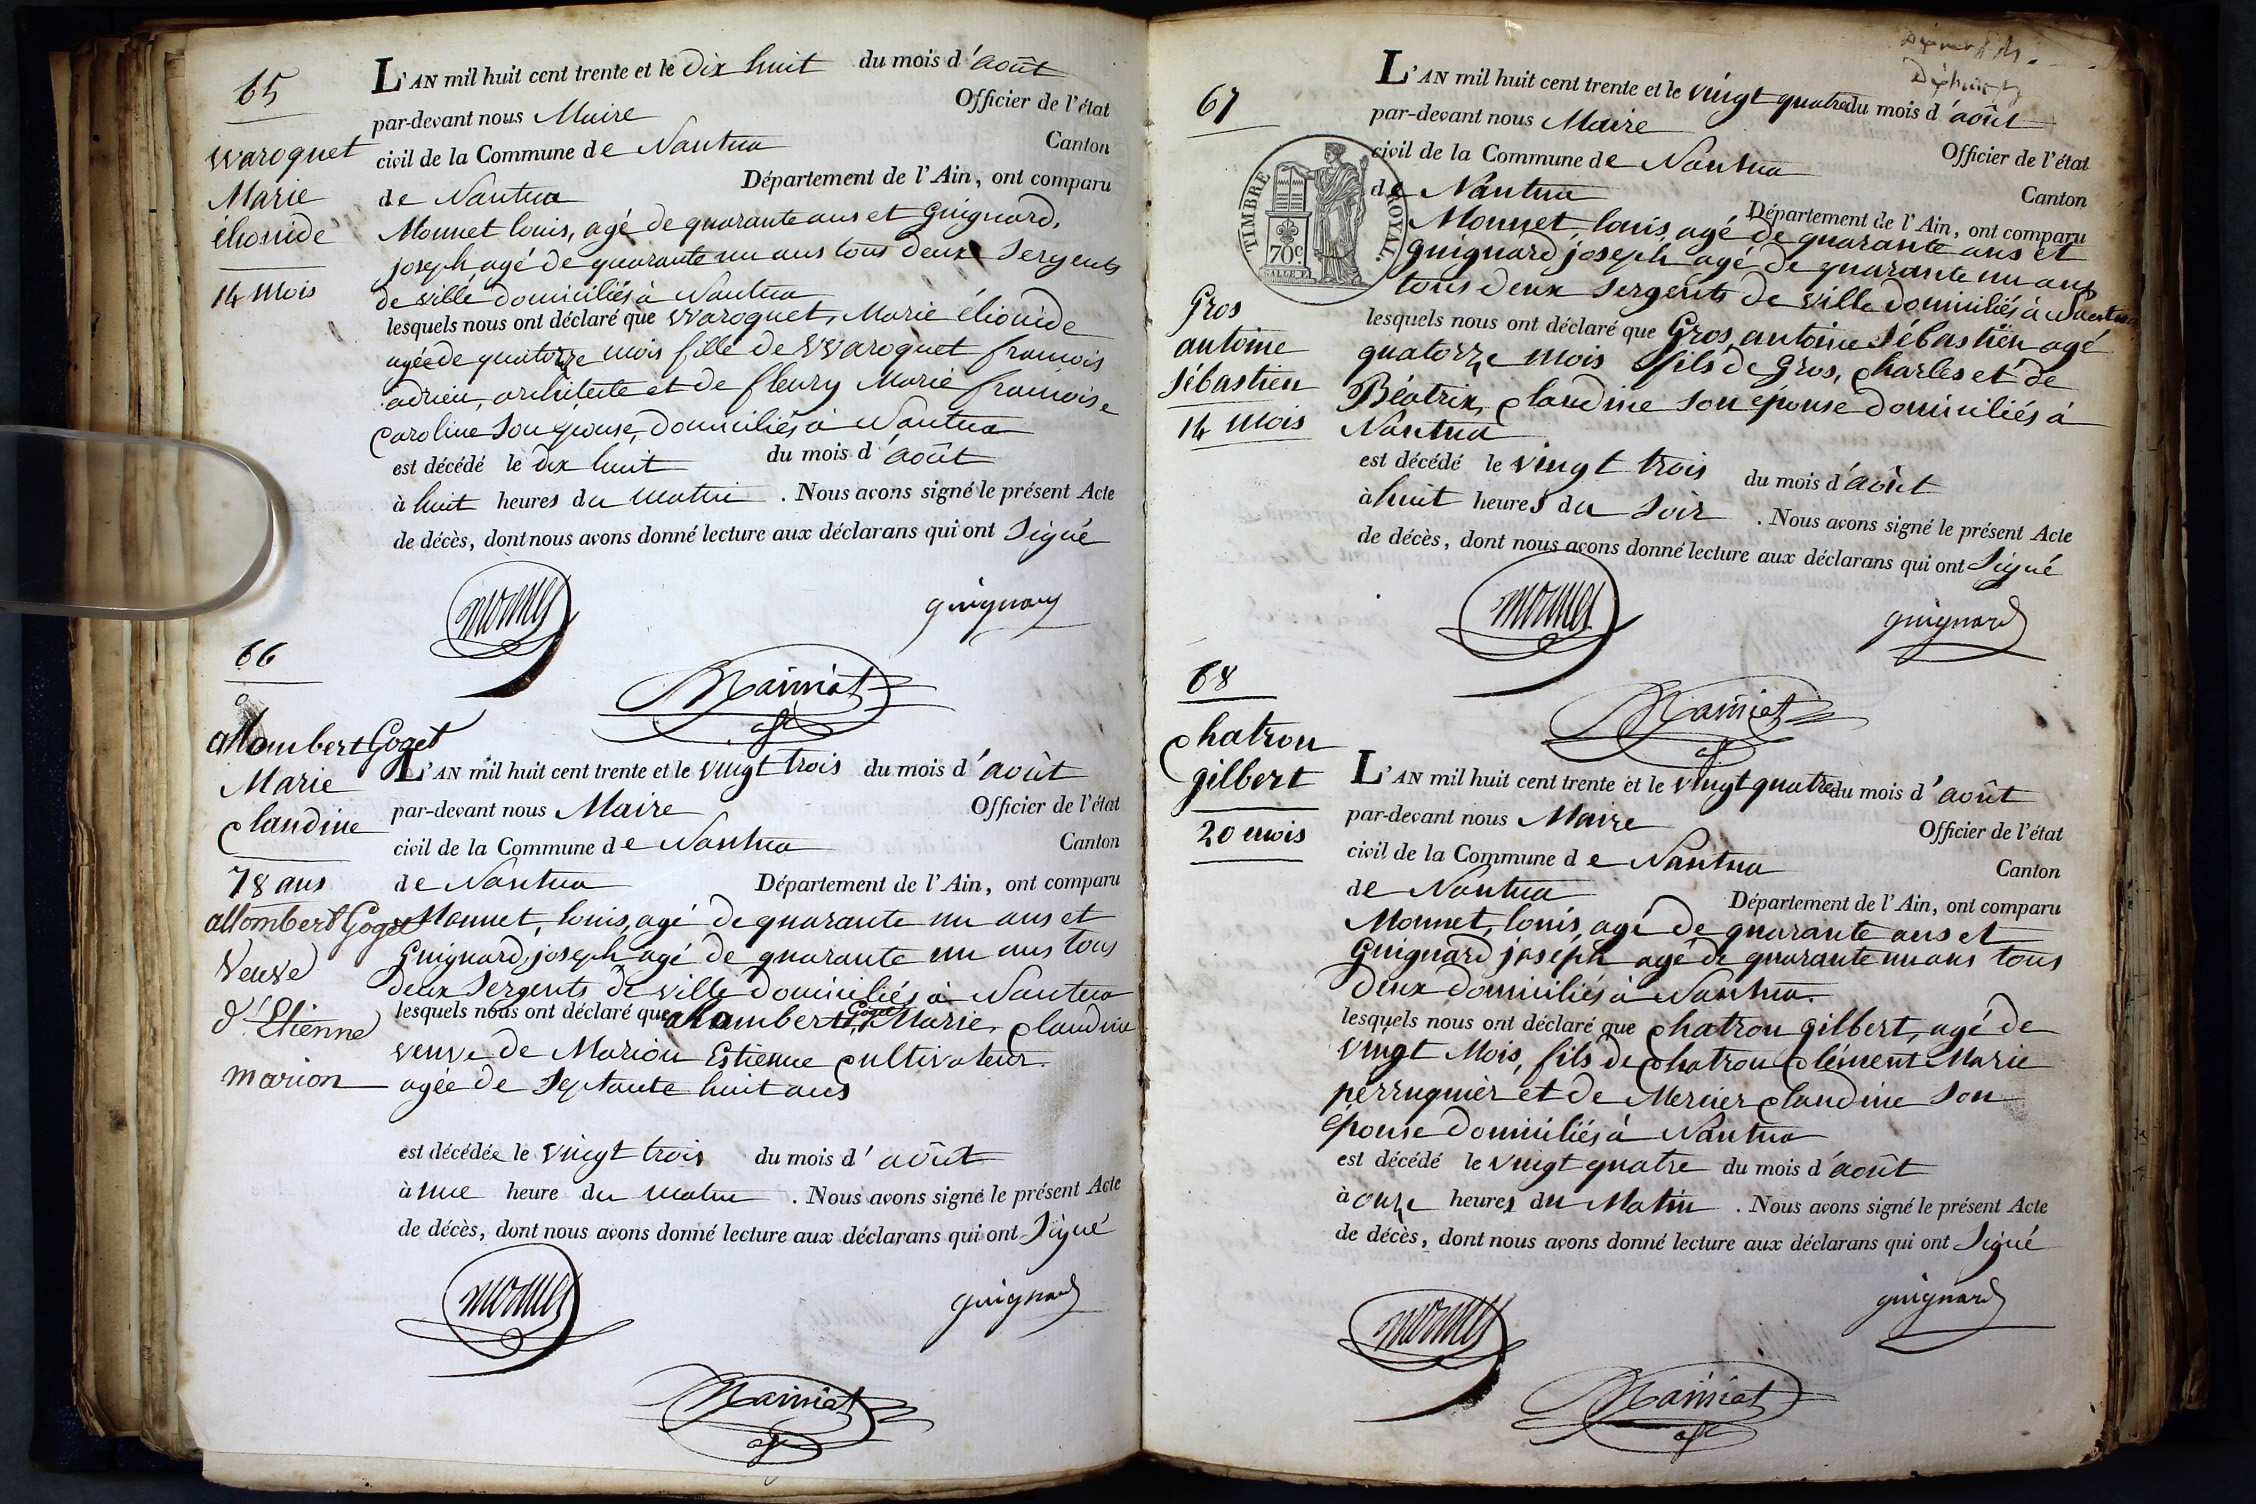 65
Waroquet
Marie
élionide
14 mois
L'AN mil huit cent trente et le dix huit du mois d'août
par-devant nous Maire Officier de l'état
civil de la Commune de Nantua Canton
de Nantua Département de l'Ain, ont comparu
Monnet louis, agé de quarante ans et Guignard,
joseph agé de quarante un ans tous deux Sergents
de ville domiciliés à Nantua
lesquels nous ont déclaré que Waroquet, Marie élionide
agée de quatorze mois fille de Waroquet françois
adrien, architecte et de fleury Marie françoise
Caroline Son épouse, domiciliés à Nantua
est décédé le dix huit du mois d'août
à huit heures du matin . Nous avons signé le présent Acte
de décès, dont nous avons donné lecture aux déclarans qui ont Signé
monnet
guignard
66
allombert Goget
Marie
Claudine
78 ans
allombert Goget
Veuve
d'Etienne
marion
L'AN mil huit cent trente et le vingt trois du mois d'août
par-devant nous Maire Officier de l'état
civil de la Commune de Nantua Canton
de Nantua Département de l'Ain, ont comparu
Monnet, louis, agé de quarante un ans et
Guignard, joseph agé de quarante un ans tous
deux Sergents de ville domiciliés à Nantua
lesquels nous ont déclaré que allombert, Goget Marie, Claudine
veuve de Marion Estienne Cultivateur
agée de Septante huit ans
est décédée le vingt trois du mois d'août
à une heure du matin . Nous avons signé le présent Acte
de décès, dont nous avons donné lecture aux déclarans qui ont Signé
monnet
guignard
67
TIMBRE ROYAL.
70c.
Gros
antoine
Sébastien
14 mois
L'AN mil huit cent trente et le vingt quatre du mois d'août
par-devant nous Maire Officier de l'état
civil de la Commune de Nantua Canton
de Nantua Département de l'Ain, ont comparu
Monnet, louis, agé de quarante ans et
Guignard joseph agé de quarante un ans
tous deux Sergents de ville domiciliés à Nantua
lesquels nous ont déclaré que Gros, antoine Sébastien agé
quatorze mois fils de Gros, Charles et de
Béatrix, Claudine Son épouse domiciliés à
Nantua
est décédé le vingt trois du mois d'août
à huit heures du Soir . Nous avons signé le présent Acte
de décès, dont nous avons donné lecture aux déclarans qui ont Signé
monnet
guignard
68
Chatron
gilbert
20 mois
L'AN mil huit cent trente et le vingt quatre du mois d'août
par-devant nous Maire Officier de l'état
civil de la Commune de Nantua Canton
de Nantua Département de l'Ain, ont comparu
Monnet, louis, agé de quarante ans et
Guignard joséph agé de quarante un ans tous
deux domiciliés à Nantua.
lesquels nous ont déclaré que Chatron gilbert, agé de
vingt Mois, fils de Chatron Clément Marie
perruquier et de Mercier Claudine Son
épouse domiciliés à Nantua
est décédé le vingt quatre du mois d'août
à onze heures du Matin . Nous avons signé le présent Acte
de décès, dont nous avons donné lecture aux déclarans qui ont Signé
monnet
guignard